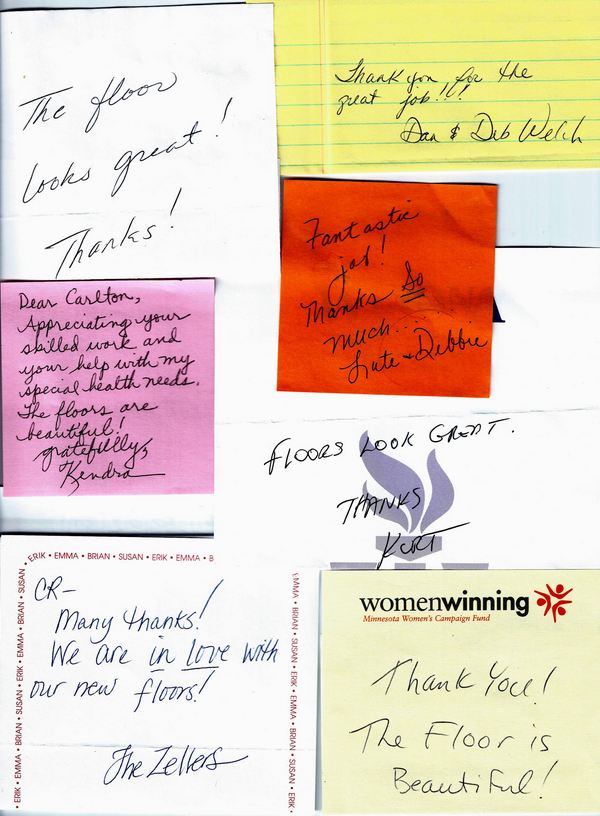 The floor
looks great!
Thanks!
Thank you for the
great job!!!
Dan & Deb Welch
Fantastic
job!
Thanks So
much......
+ Debbie
Dear Carlton,
Appreciating your
skilled work and
your help with my
special health needs.
The floors are
beautiful!
gratefully,
Kendra
FLOORS LOOK GREAT.
THANKS
KURT
ERIK • EMMA • BRIAN • SUSAN • ERIK • EMMA • B
• ERIK • EMMA • BRIAN • SUSAN • ERIK • EMMA • BRIAN • SUSAN
EMMA • BRIAN • SUSAN • ERIK • EMMA • BRIAN • SUSAN • ERIK •
CR-
Many thanks!
We are in love with
our new floors!
The Zellers
womenwinning
Minnesota Women's Campaign Fund
Thank You!
The Floor is
Beautiful!